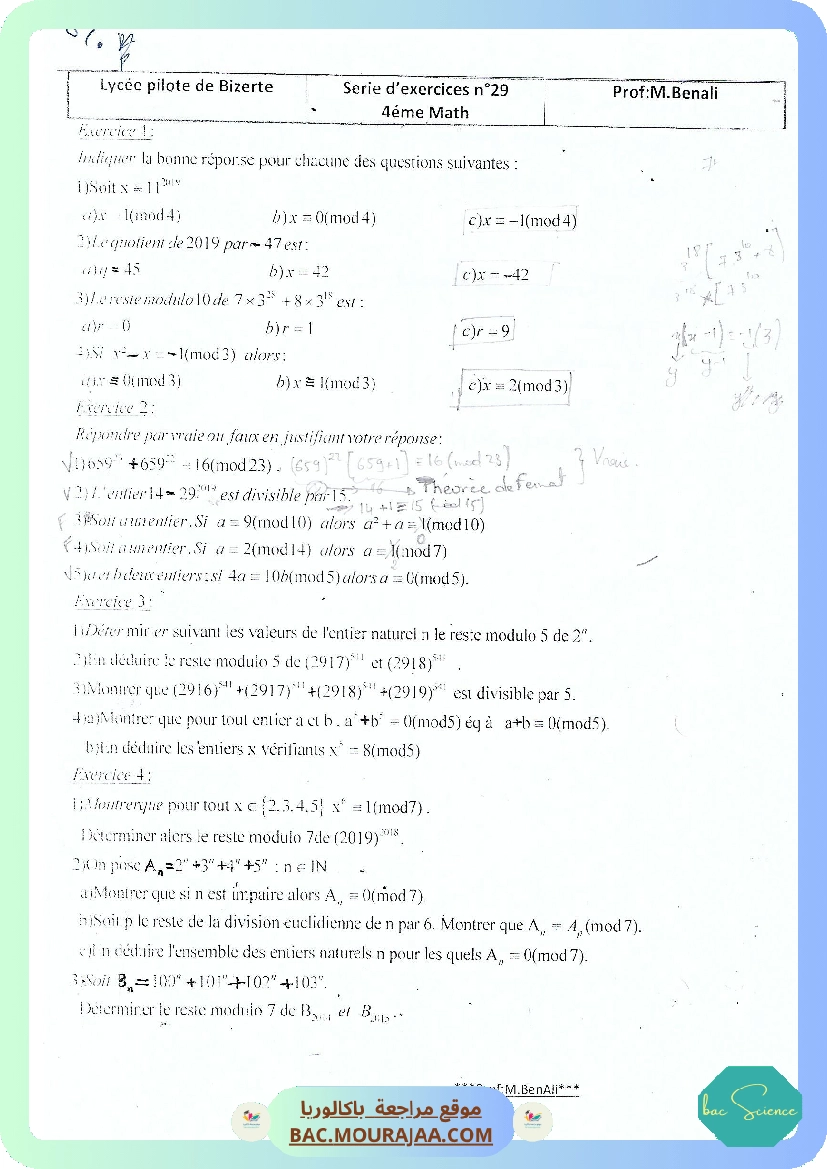 Lycée pilote de Bizerte
Serie d'exercices n°29
4éme Math
Prof:M.Benali
Exercice 1:
Indiquer la bonne réponse pour chacune des questions suivantes :
1)Soit x = 11²⁰¹⁹
a)x 1(mod4) b)x ≡ 0(mod4) c)x ≡ −1(mod4)
2)Le quotient de 2019 par − 47 est:
a)q = 45 b)x = 42 c)x = −42
3)Le reste modulo10 de 7×3²⁸ +8×3¹⁸ est :
a)r = 0 b)r = 1 c)r = 9
4)Si x²− x ≡ −1(mod3) alors:
a)x ≡ 0(mod3) b)x ≡ 1(mod3) c)x ≡ 2(mod3)
Exercice 2:
Répondre par vraie ou faux en justifiant votre réponse:
1)659 +659²² ≡16(mod23). (659)²² [659+1] ≡16(mod23) } Vrais
2) L'entier14− 29²⁰¹⁹ est divisible par15. Théorèe de Femat
14 +1≡15
3)Soit a un entier.Si a ≡ 9(mod10) alors a²+a ≡ 1(mod10)
4)Soit a un entier.Si a ≡ 2(mod14) alors a ≡ 1(mod7)
5)a et b deux entiers:si 4a ≡ 10b(mod5)alors a ≡ 0(mod5).
Exercice 3:
1)Déterminer suivant les valeurs de l'entier naturel n le reste modulo 5 de 2ⁿ.
2)En déduire le reste modulo 5 de (2917)⁵⁴¹ et (2918)⁵⁴¹ .
3)Montrer que (2916)⁵⁴¹+(2917)⁵⁴¹+(2918)⁵⁴¹+(2919)⁵⁴¹ est divisible par 5.
4)a)Montrer que pour tout entier a et b , a⁵+b⁵ ≡ 0(mod5) éq à a+b ≡ 0(mod5).
b)En déduire les entiers x vérifiants x⁵ ≡ 8(mod5)
Exercice 4:
1)Montrerque pour tout x ∈ {2,3,4,5} x⁶ ≡1(mod7) .
Déterminer alors le reste modulo 7de (2019)²⁰¹⁸.
2)On pose Aₙ=2ⁿ+3ⁿ+4ⁿ+5ⁿ : n ∈ IN
a)Montrer que si n est impaire alors Aₙ ≡ 0(mod7)
b)Soit p le reste de la division euclidienne de n par 6. Montrer que Aₙ ≡ Aₚ(mod7).
c)En déduire l'ensemble des entiers naturels n pour les quels Aₙ ≡ 0(mod7).
3)Soit Bₙ=100ⁿ+101ⁿ+102ⁿ+103ⁿ.
Déterminer le reste modulo 7 de B et B
M.BenAli***
موقع مراجعة باكالوريا
BAC.MOURAJAA.COM
bac Science